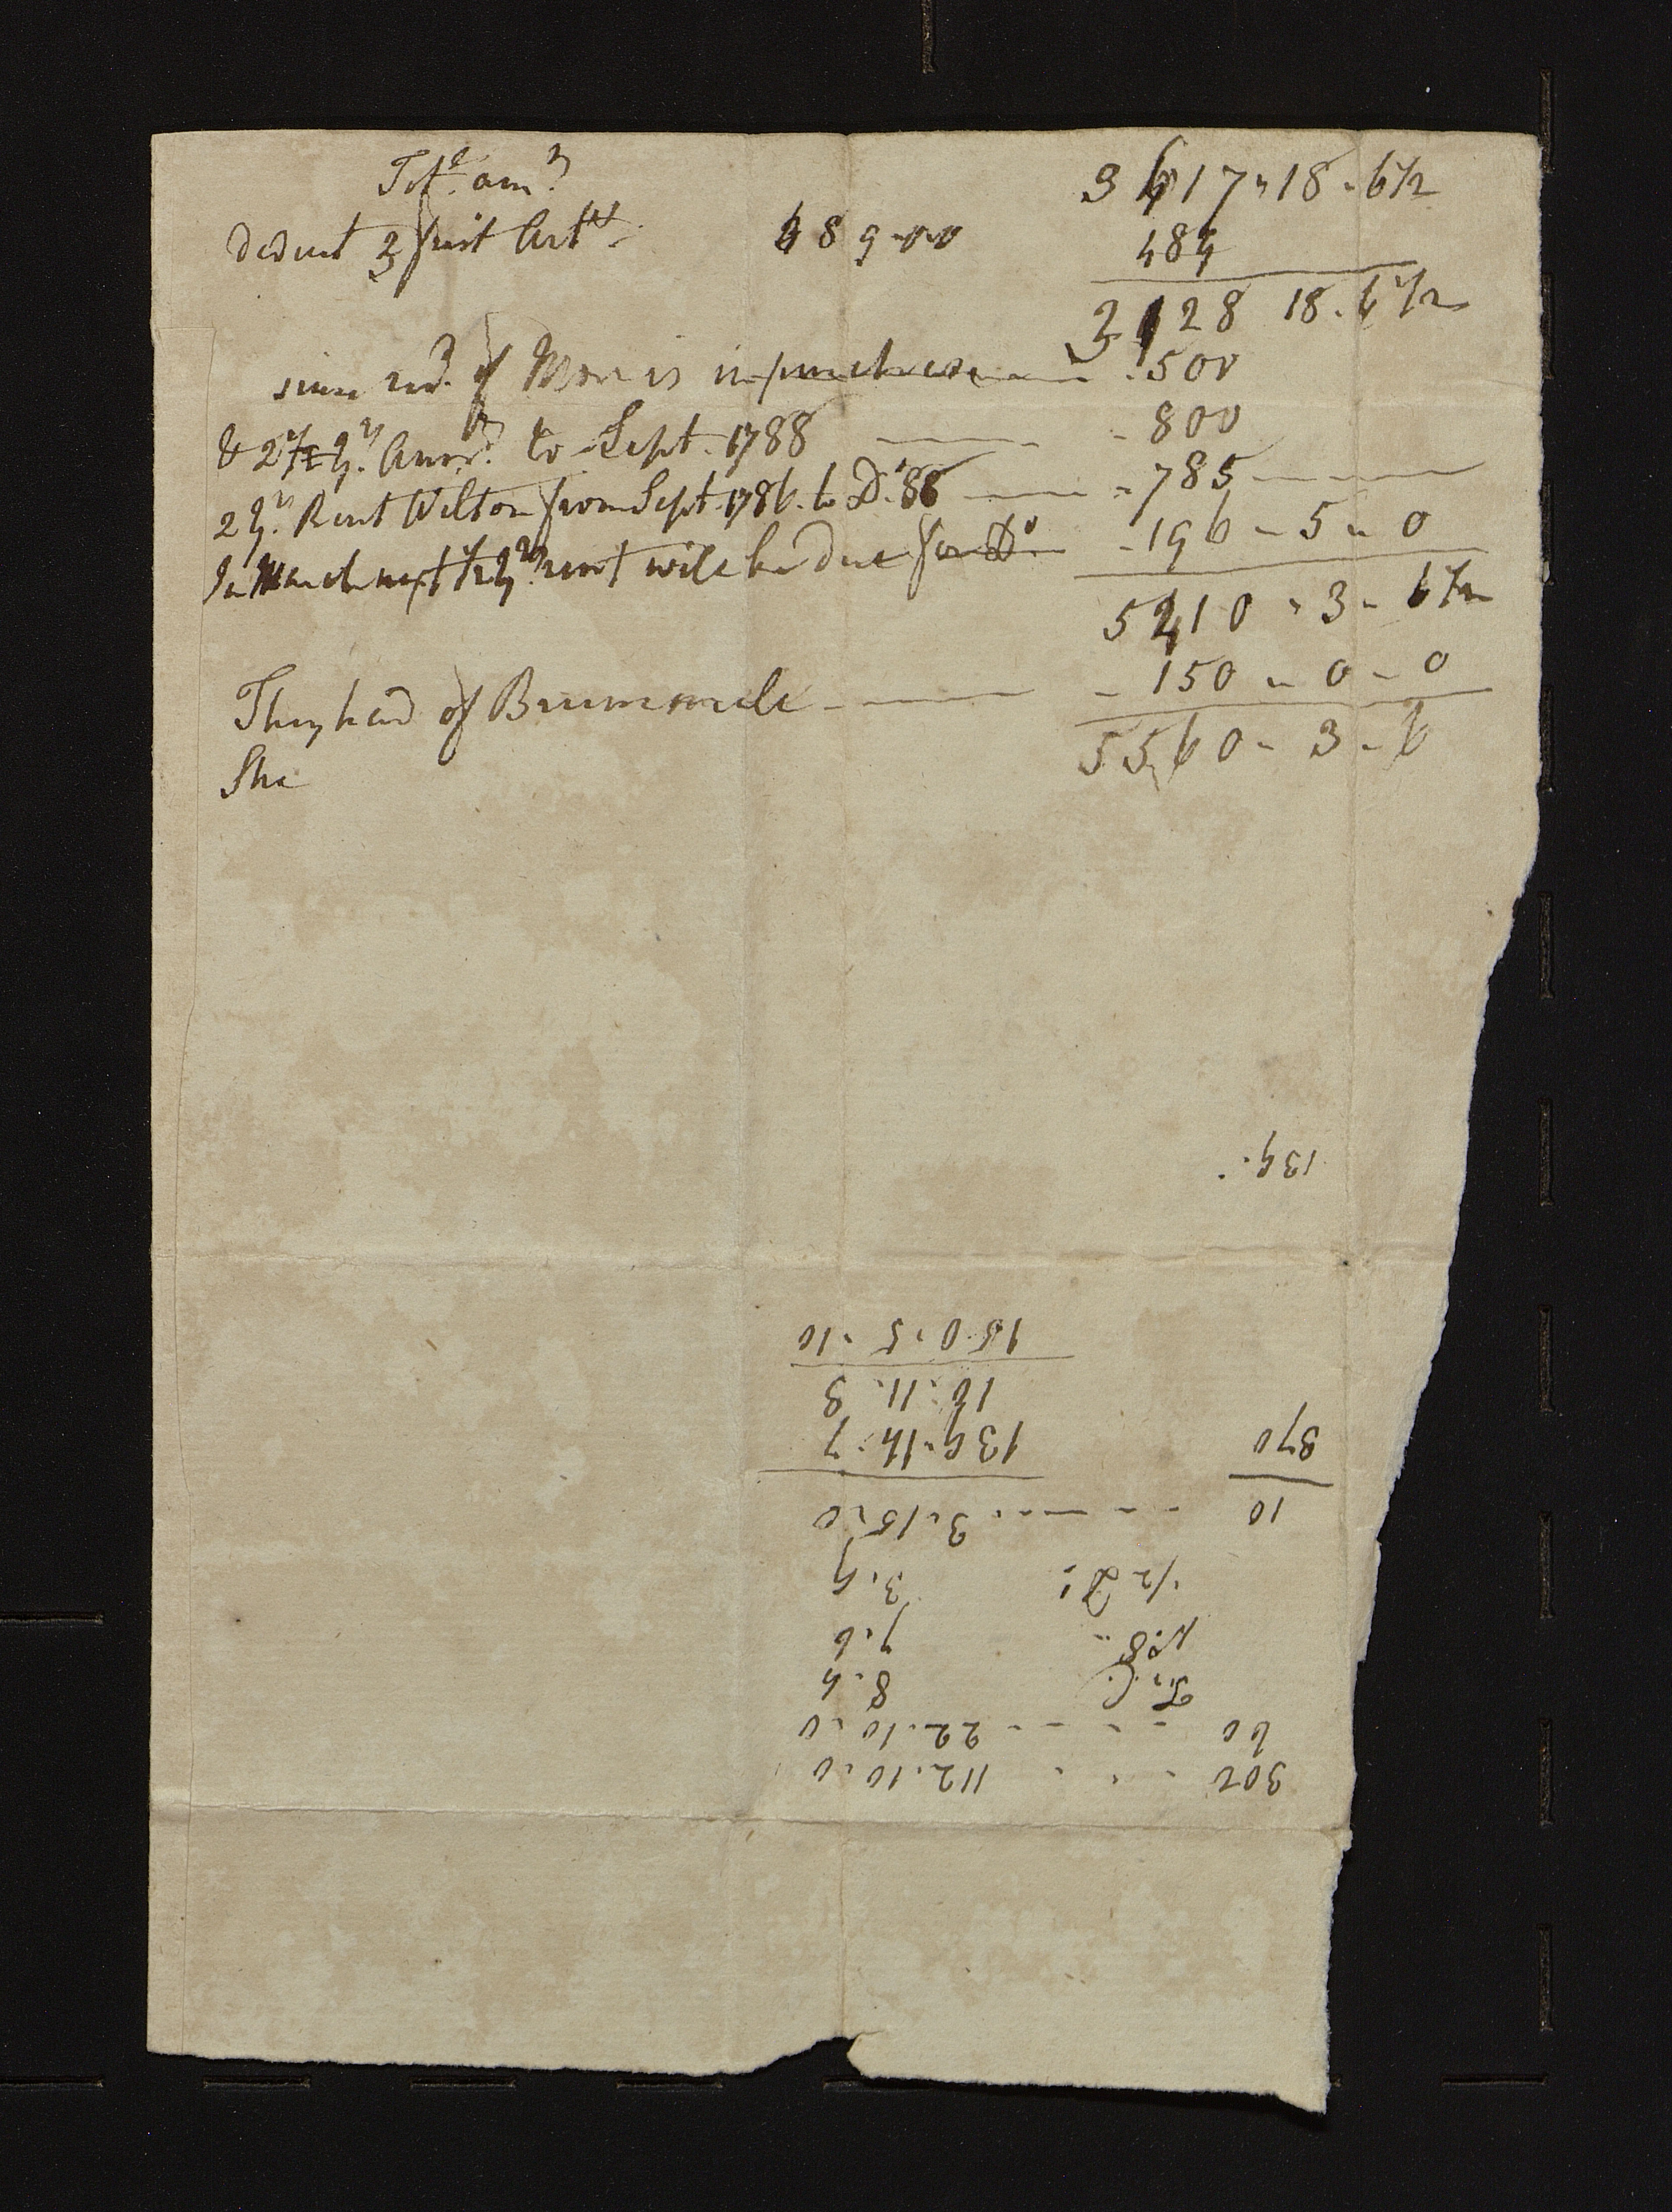 Tot.l am.t 3617 " 18 - 6 1/2
deduct 3 first Art.s 489-0-0 489
3128 18 - 6 1/2
since rec.d of Morris in purchase 500
& 2 y.rs Ann.y to Sept. 1788 800
2 y.rs Rent Wilton from Sept. 1786 to D.o 88 785
In March next 1/2 y.rs rent will be due for D.o 196 - 5 - 0
5410 - 3 - 6 1/2
They had of Brummell 150 - 0 - 0
5560 - 3 - 6
She
302 112. 10. 0
60 22. 10. 0
8. 4
7. 6
1/2 D.o 3. 9
10 3. 15. 0
370 139. 14. 7
16. 11. 3
150. 5. 10
139.